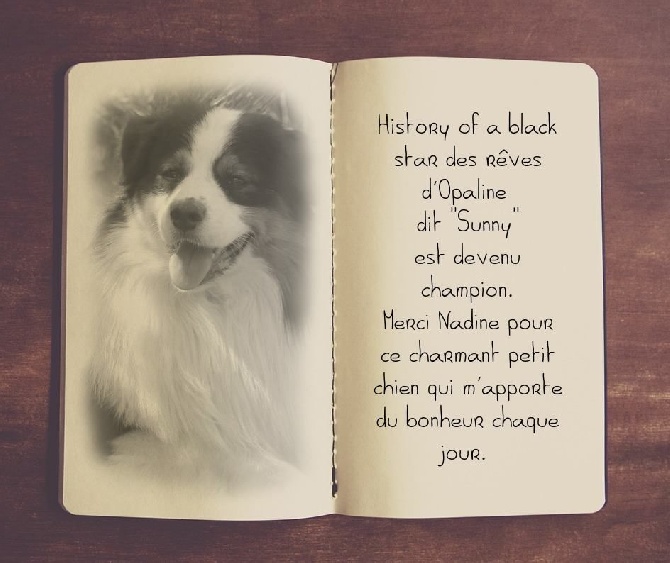 History of a black
star des rêves
d'Opaline
dit "Sunny"
est devenu
champion.
Merci Nadine pour
ce charmant petit
chien qui m'apporte
du bonheur chaque
jour.